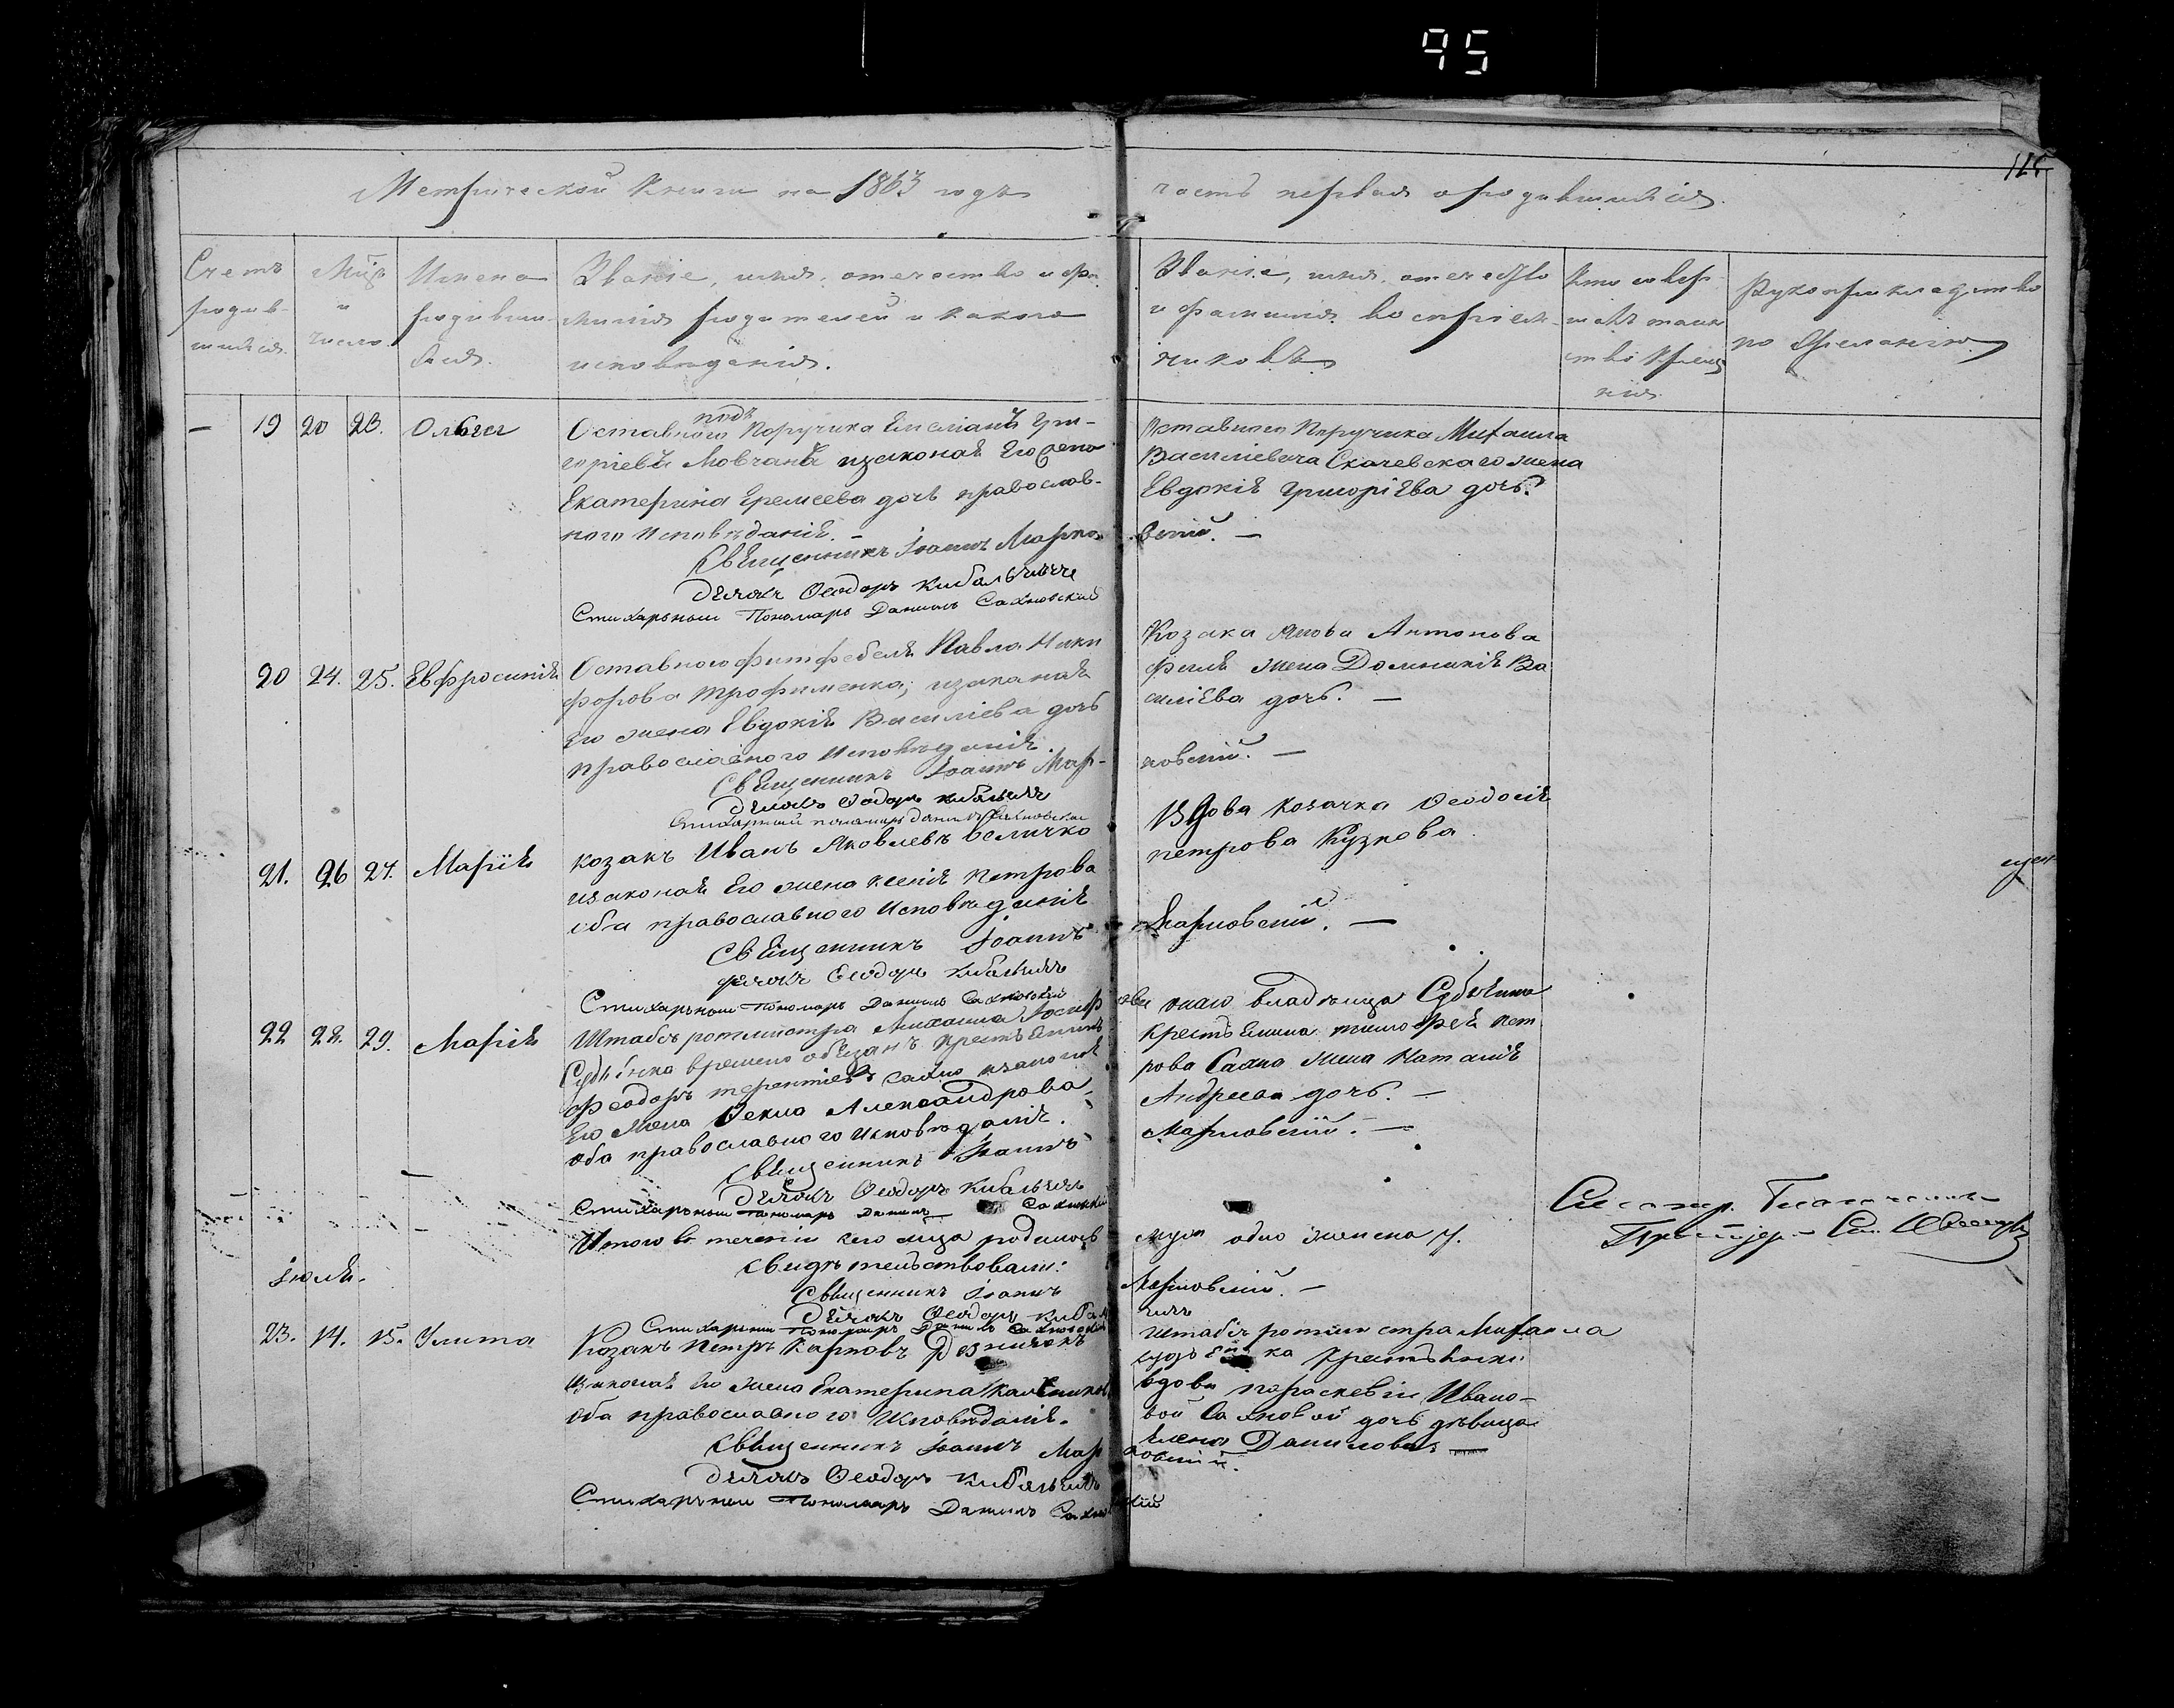 95
Метрической Книги на 1863 годъ
часть первая о родившихся.
Счетъ родив- шихся.
Мцъ и число.
Имена родивши хся.
Званіе, имя, отечество и фа-
милія родителей и какого
исповеданія.
Званіе, имя, отечество
и фамилія воспріем-
никовъ
Кто совер-
шалъ таин
ство Креще
нія
Рукоприкладство
по желанію
под
— 19 20 23. Ольга Оставного Поручика Емеліанъ Гри-
горіевъ Мовчанъ изаконая Его жена
Екатерина Еремеева дочь православ-
ного Исповеданія. —
Оставного Поручика Михаила
Василіевича Скачевскаго жена
Евдокія Григоріева дочь.
Священникъ Іоаннъ Марко вскій. —
Дьячокъ Ѳеодоръ Кибальчичъ
Стихарный Пономарь Даниилъ Сахновский
20 24. 25. Евфросинія Оставного фитфебеля Павла Ники
форова Трофименка, изаконая
Его жена Евдокія Василіева дочь
православного Исповеданія.
Козака Якова Антонова
жена Домникія Ва
силіева дочь. —
Священникъ Іоаннъ Мар- ковскій. —
Дьячокъ Ѳеодоръ Кибальчичъ
Стихарный пономарь Даниилъ Сахновский
21. 26 27. Марія козакъ Иванъ Яковлевъ Величко
изаконая Его жена Ксенія Петрова
оба православного Исповеданія
Вдова козачка Ѳеодосія
петрова Кузнова
Священникъ Іоаннъ Марковскій. —
дьячокъ Ѳеодоръ Кибальчичъ
Стихарный Пономарь Даниилъ Сахновский
22 28. 29. Марія Штабсъ ротмистра Михаила Іосиф
Судьенка временно обязанъ крестьянинъ
Феодоръ терентіевъ Сахно изаконая
Его Жена Ѳекла Александрова
оба православного исповеданія.
оваго владельца Судьенка
крестьянина тимофея пет
рова Сахна жена Наталія
Андреева дочь. —
Священникъ Іоаннъ Марковскій. —
Дьячокъ Ѳеодоръ Кибальчичъ
Стихарный Пономарь Даниилъ Сахновский
Итого въ теченіи сего мца родилось муж одно женска 7.
Свидетельствовали:
Священникъ Іоаннъ Марковскій. —
Дьячокъ Ѳеодоръ Кибаль чичъ
Стихарный Пономарь Даниилъ Сахновский
Іюля.
23. 14. 15. Улита Козакъ Петръ Карповъ
изаконая Его жена Екатерина
оба православного Исповеданія.
штабсъ ротмистра Михаила
Судьенка крестьянки
вдовы параскевіи Ивано-
вой Сахновой дочь девица
Елена Данилова —
Священникъ Іоаннъ Мар ковский.
Дьячокъ Ѳеодоръ Кибальчичъ
Стихарный Пономарь Даниилъ Сахновский